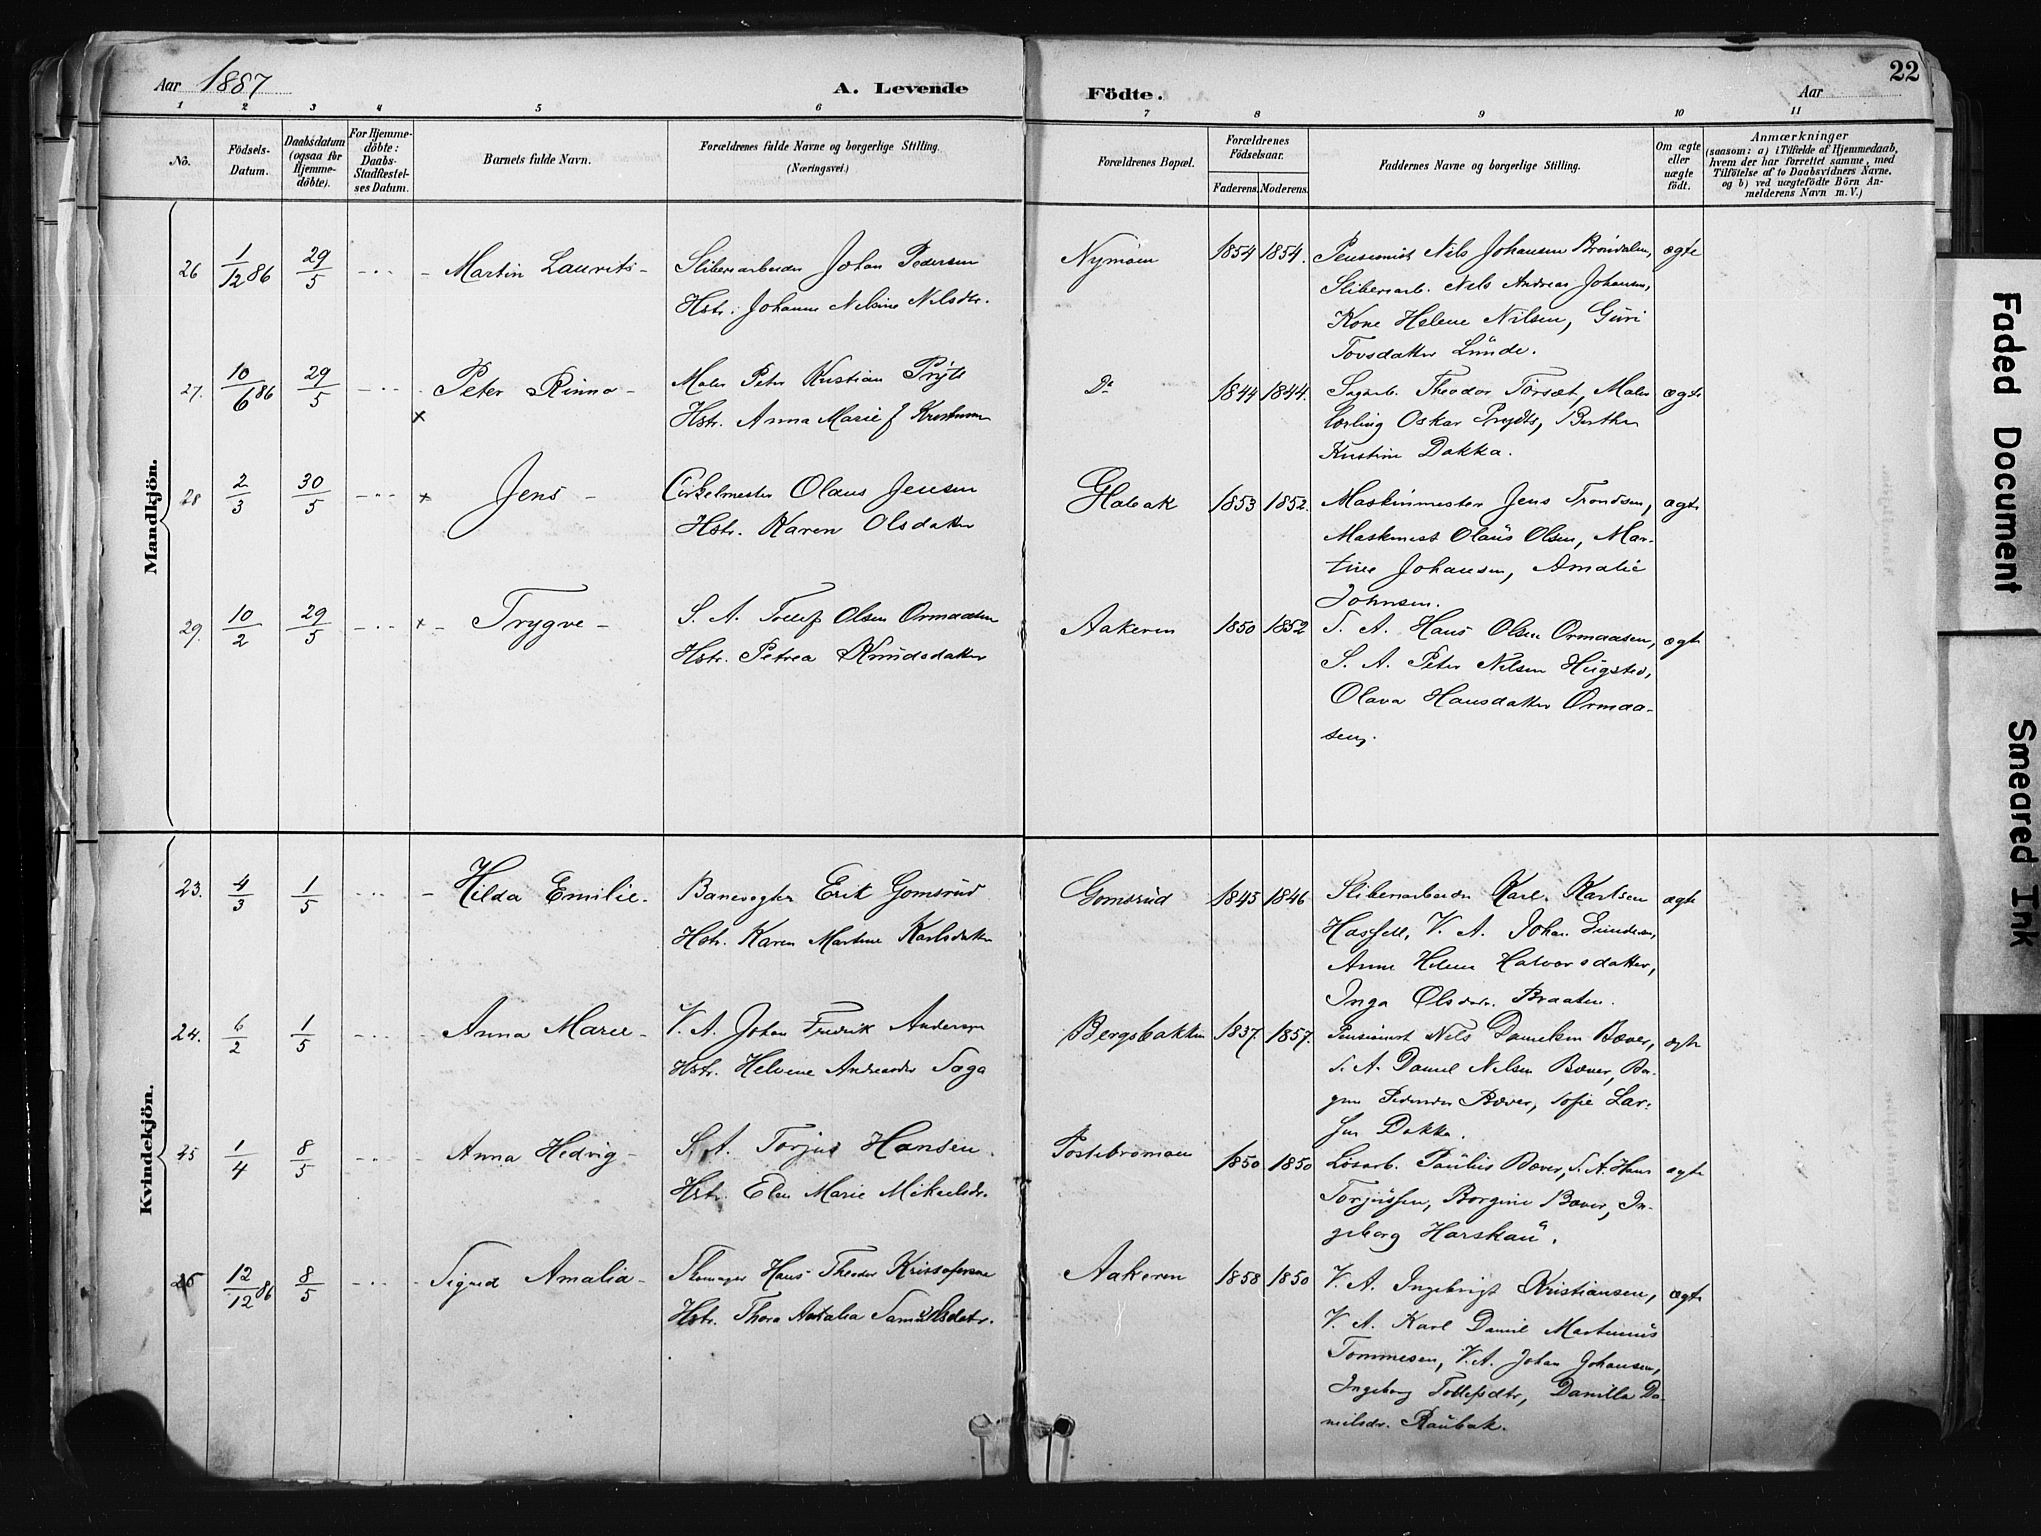 Aar 1887 A. Levende Födte. Aar 22
1 2 3 4 5 6 7 8 9 10 11
No.
Födsels-
Datum.
Daabsdatum
(ogsaa for
Hjemme-
döbte).
For Hjemme-
döbte:
Daabs-
Stadfæstel-
ses Datum.
Barnets fulde Navn.
Forældrenes fulde Navne og borgerlige Stilling.
(Næringsvei.)
Forældrenes Bopæl.
Forældrenes
Födselsaar.
Faderens. Moderens.
Faddernes Navne og borgerlige Stilling.
Om ægte
eller
uægte
födt.
Anmærkninger
(saasom: a) i Tilfælde af Hjemmedaab,
hvem der har forrettet samme, med
Tilföielse af to Daabsvidners Navne.
og b) ved uægtefödte Börn An-
melderens Navn m. V.)
Mandkjön.
26 1/12 86 29/5 Martin Laurits Sliberarbeider Johan Pedersen
Hstr. Johanne Nelsine Nilsdtr.
Nymoen 1854 1854. Pensionist Nils Johansen Brøndalen, ægte
Sliberarb. Nels Andreas Johansen,
Kone Helene Nilsen, Guri
Tovsdatter Lunde.
27. 10/6 86 29/5 Peter Rinno Maler Peter Kristian Prÿts
x Hstr. Anna Marie f Kristensen
Do 1844 1844. Sagarb. Theodor Torsæt, Maler ægte
lærling Oskar Prydts, Berthe
Kristine Dokka.
28 2/3 30/5 x Jens Cirkelmester Olaus Jensen
Hstr. Karen Olsdatter
Glabak 1853 1852. Maskinmester Jens Trondsen, ægte
Maskinist Olaus Olsen, Mar-
tine Johansen, Amalie
Johnsen.
29. 10/2 29/5 x Trygve S. A. Tollef Olsen Ormaasen
Hstr. Petrea Knudsdatter
Aakeren 1850 1852 S. A. Hans Olsen Ormaasen, ægte
S. A. Peter Nilsen Hugsted,
Olava Hansdatter Ormaa-
sen.
Kvindekjön.
23. 4/3 1/5 Hilda Emilie. Banevogter Erik Gomsrud
Hstr. Karen Martine Karlsdatter
Gomsrud 1845 1846 Sliberarbeider Karl Karlsen ægte
Hassel, V. A. Johan Gundersen,
Anne Helene Halvorsdatter,
Inga Olsdtr. Braaten.
24. 6/2 1/5 Anna Marie V. A. Johan Fredrik Andersen
Hstr. Helvine Andreasdtr Saga
Bergsbakken 1837. 1857. Pensionist Nels Danielsen Bæver, ægte
S. A. Daniel Nilsen Bæver, Bor-
gine Pedersdtr Bæver, Sofie Lar-
sen Dokka.
25 1/4 8/5 Anna Hedvig S. A. Torjus Hansen.
Hstr. Elen Marie Mikelsdr.
Postebromoen 1850 1850 Løsarb. Paulus Bæver, S. A. Hans ægte
Torjussen, Borgine Bæver, In-
geborg Horskau.
26 12/12 86 8/5 Signed Amalia Flemager Hans Theodor Kristofersen
Hstr. Thora Natalia Samuelsdtr.
Aakeren 1858 1850 V. A. Ingebrigt Kristiansen, ægte
V. A. Karl Daniel Martinius
Tommesen, V. A. Johan Johansen,
Ingeborg Tollefsdtr, Danilla Da-
nielsdr. Raubak.
Faded Document
Smeared Ink